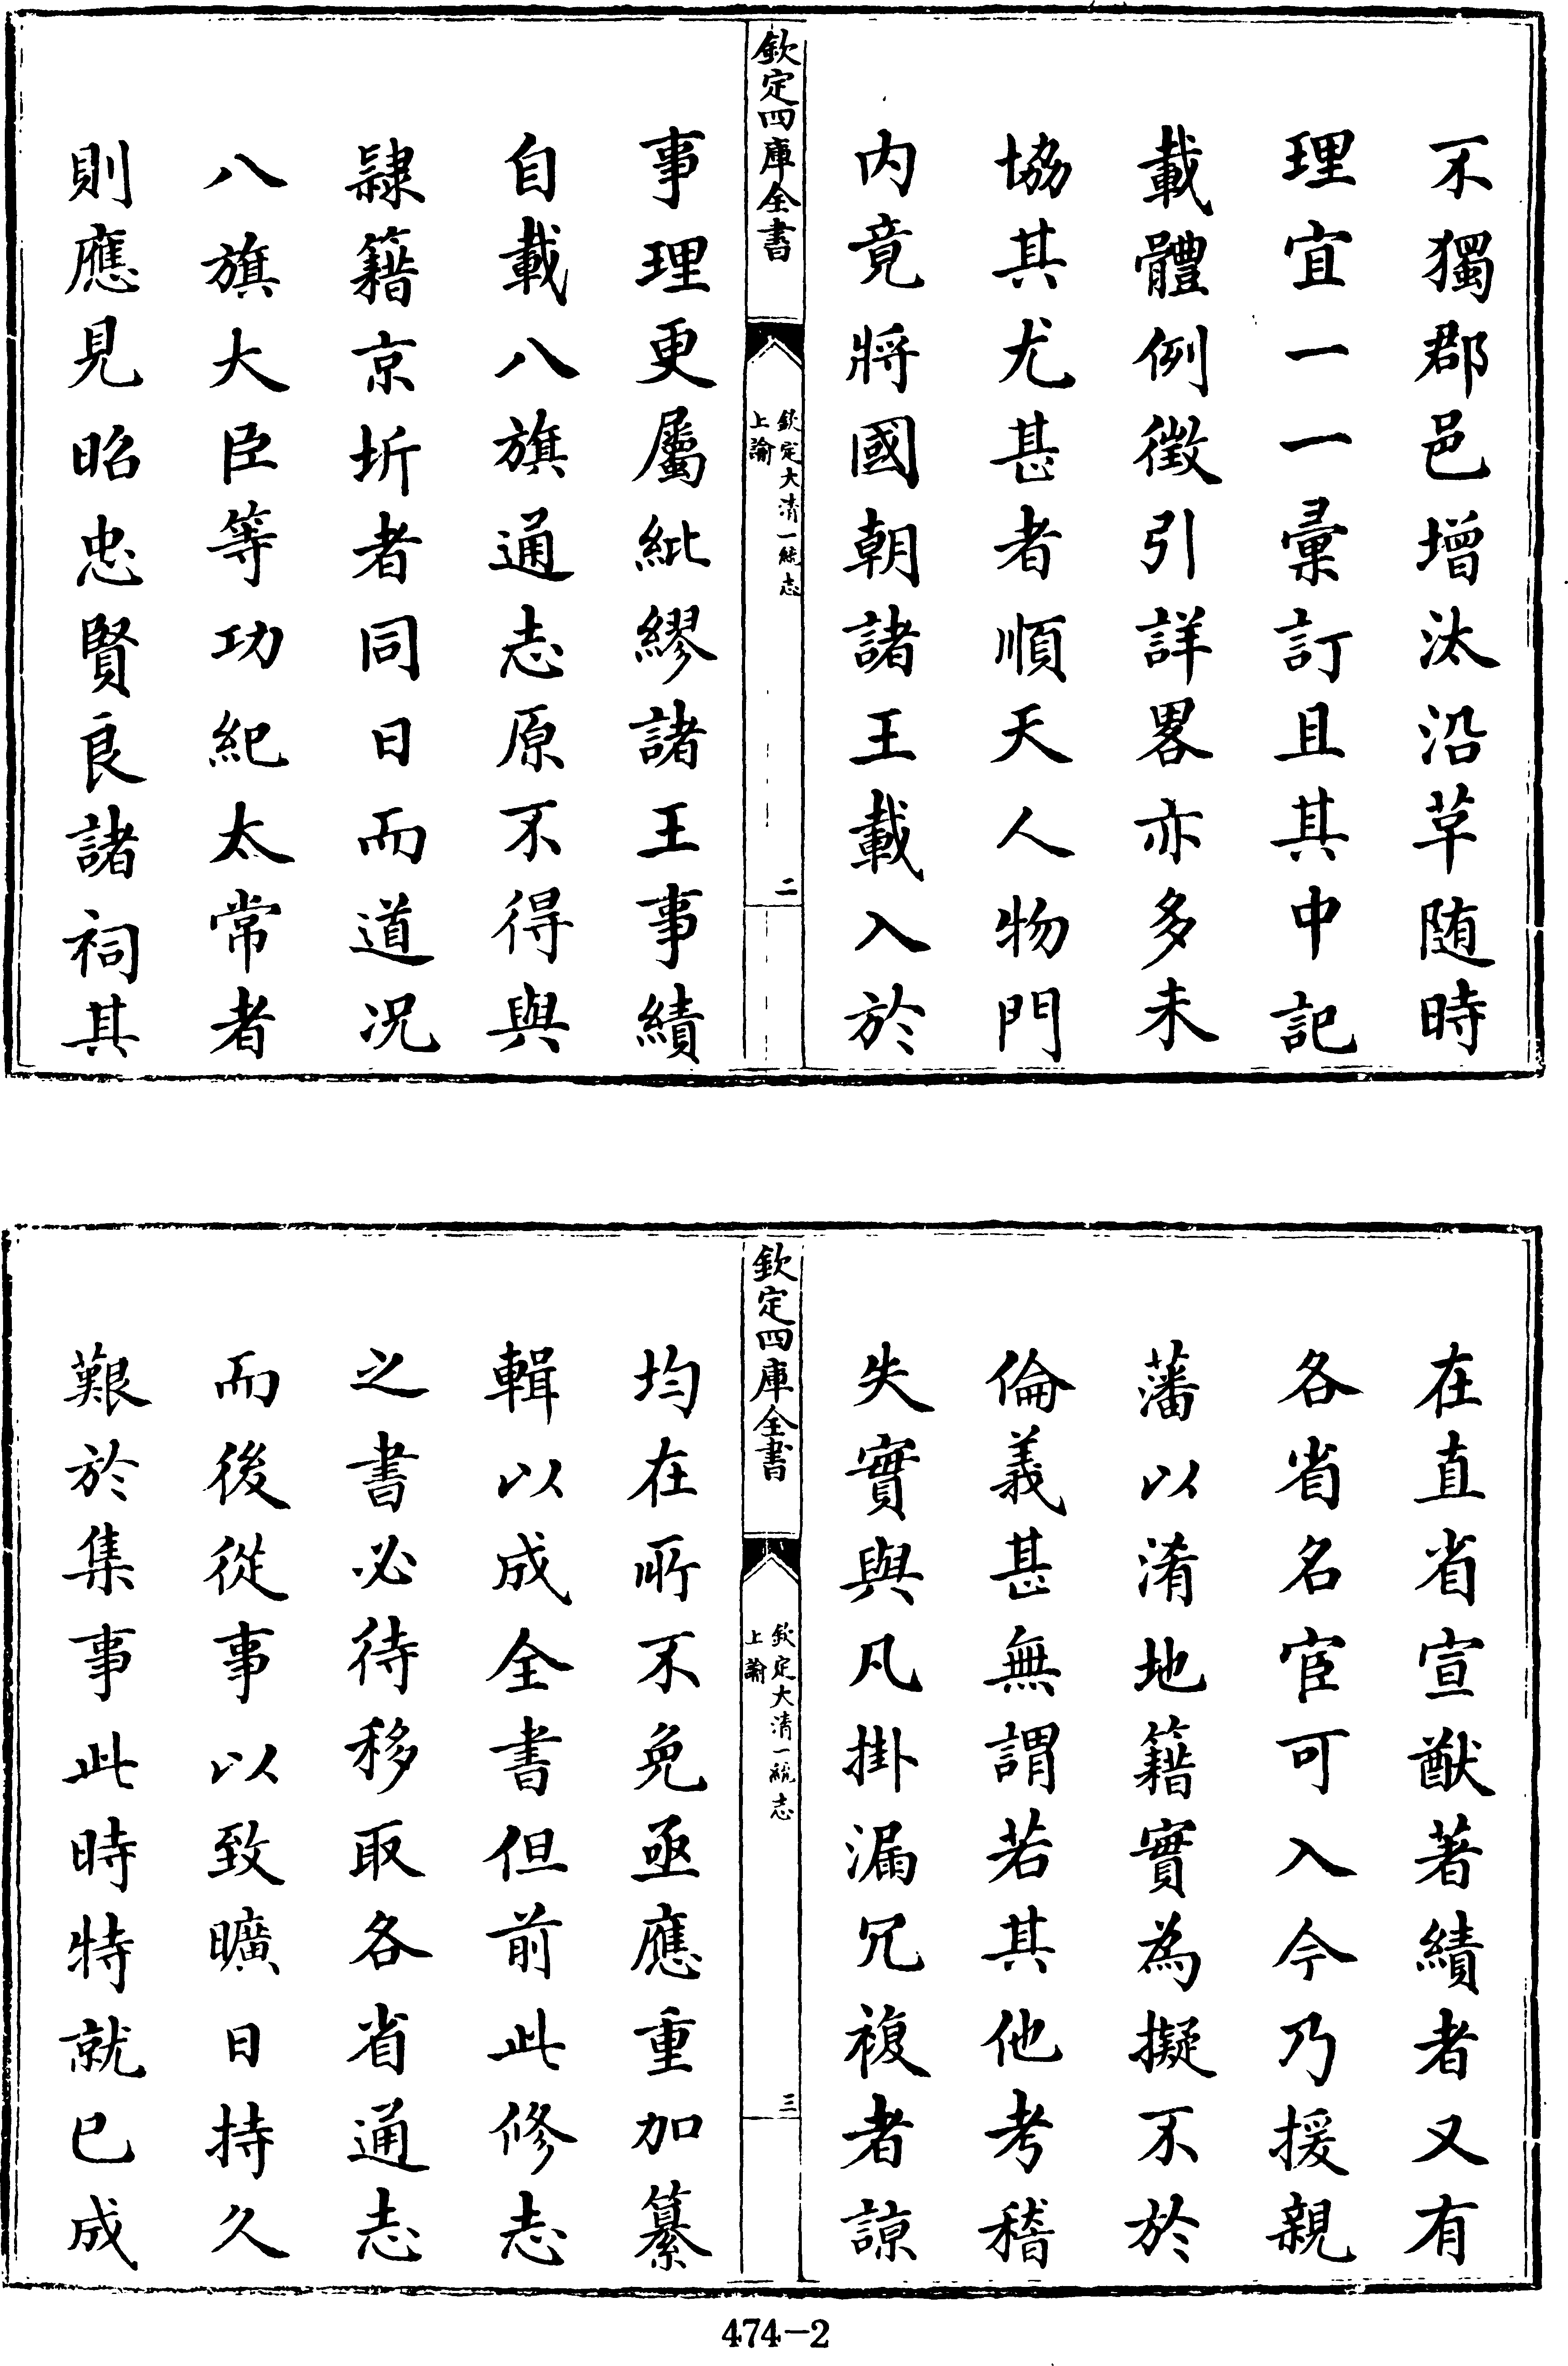 不獨郡邑增汰沿革随時
理宜一一彙訂且其中記
載體例徴引詳畧亦多未
協其尤甚者順天人物門
内竟將國朝諸王載入於
欽定四庫全書
欽定大清一統志
上諭
二
事理更屬紕繆諸王事績
自載八旗通志原不得與
隸籍京圻者同日而道况
八旗大臣等功紀太常者
則應見昭忠賢良諸祠其
在直省宣猷著績者又有
各省名宦可入今乃援親
藩以淆地籍實為擬不於
倫義甚無謂若其他考稽
失實與凡掛漏冗複者諒
欽定四庫全書
欽定大清一統志
上諭
三
均在所不免亟應重加纂
輯以成全書但前此修志
之書必待移取各省通志
而後從事以致曠日持久
艱於集事此時特就已成
474-2